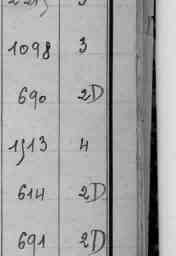 1098 3
690 2D
1513 4
614 2D
691 2D